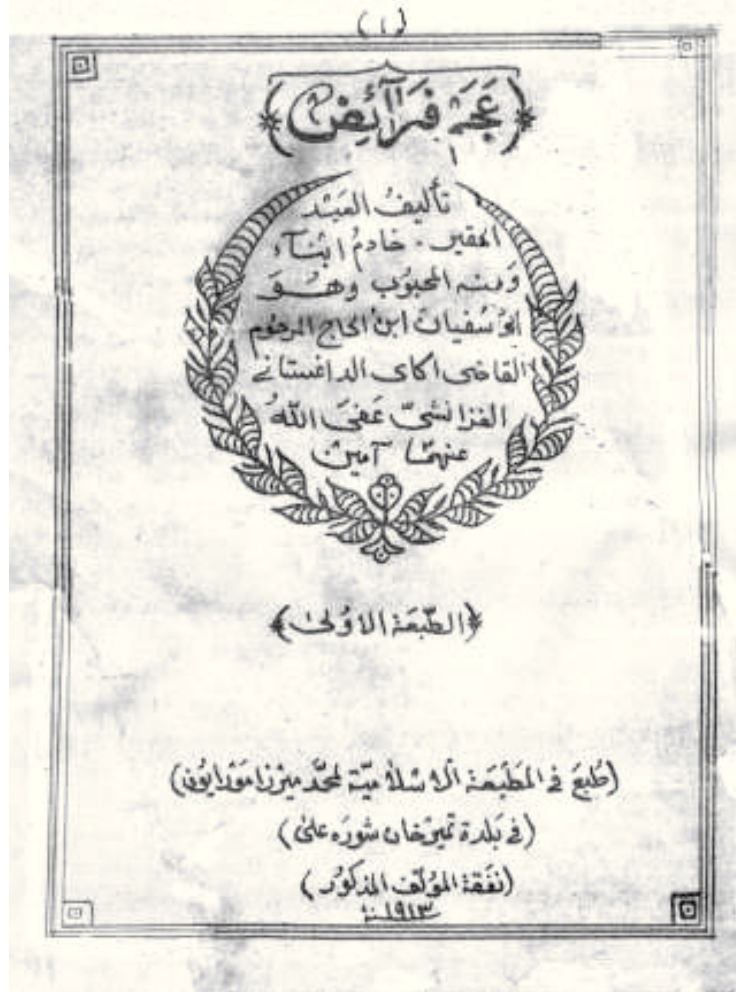 (١)
﴿عَجَمْ فَرَآئِضْ﴾
تأليفُ العَبْد
الحقير . خادمُ ابْنآء
وَطنه المحبوُب وهُوَ
ابوُ سُفيان ابن الحاج المرحوُم
القاضى اكاى الداغستانے
الغزانشىّ عَفىَ اللهُ
عنهمَا آمين
﴿الطّبعَة الاوُلى﴾
(طُبعَ فى المَطْبعَة الْاِسْلاميّة لمحمّد ميرزا مَوْرايوُف)
(فى بَلدة تميرخان شوُرَه علىٰ)
(نفقة المؤلّف المذكوُر)
١٩١٣ سنة